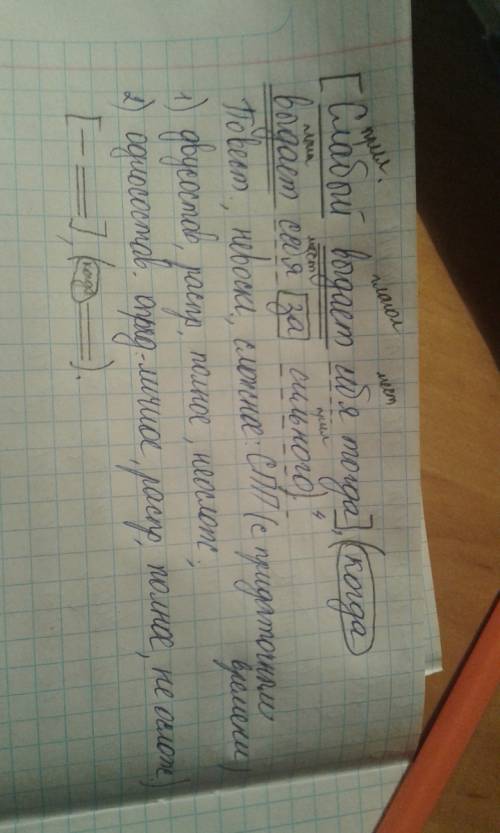 прил. глагол мест
[Слабый выдает себя тогда], (когда
глаг мест прил
выдает себя [за] сильного). 4
Повест., невоскл., сложное: СПП (с придаточным
времени)
1) двусостав, распр, полное, неослож.;
2) односостав. опред-личное, распр, полное, не ослож.)
[— =], (когда =).